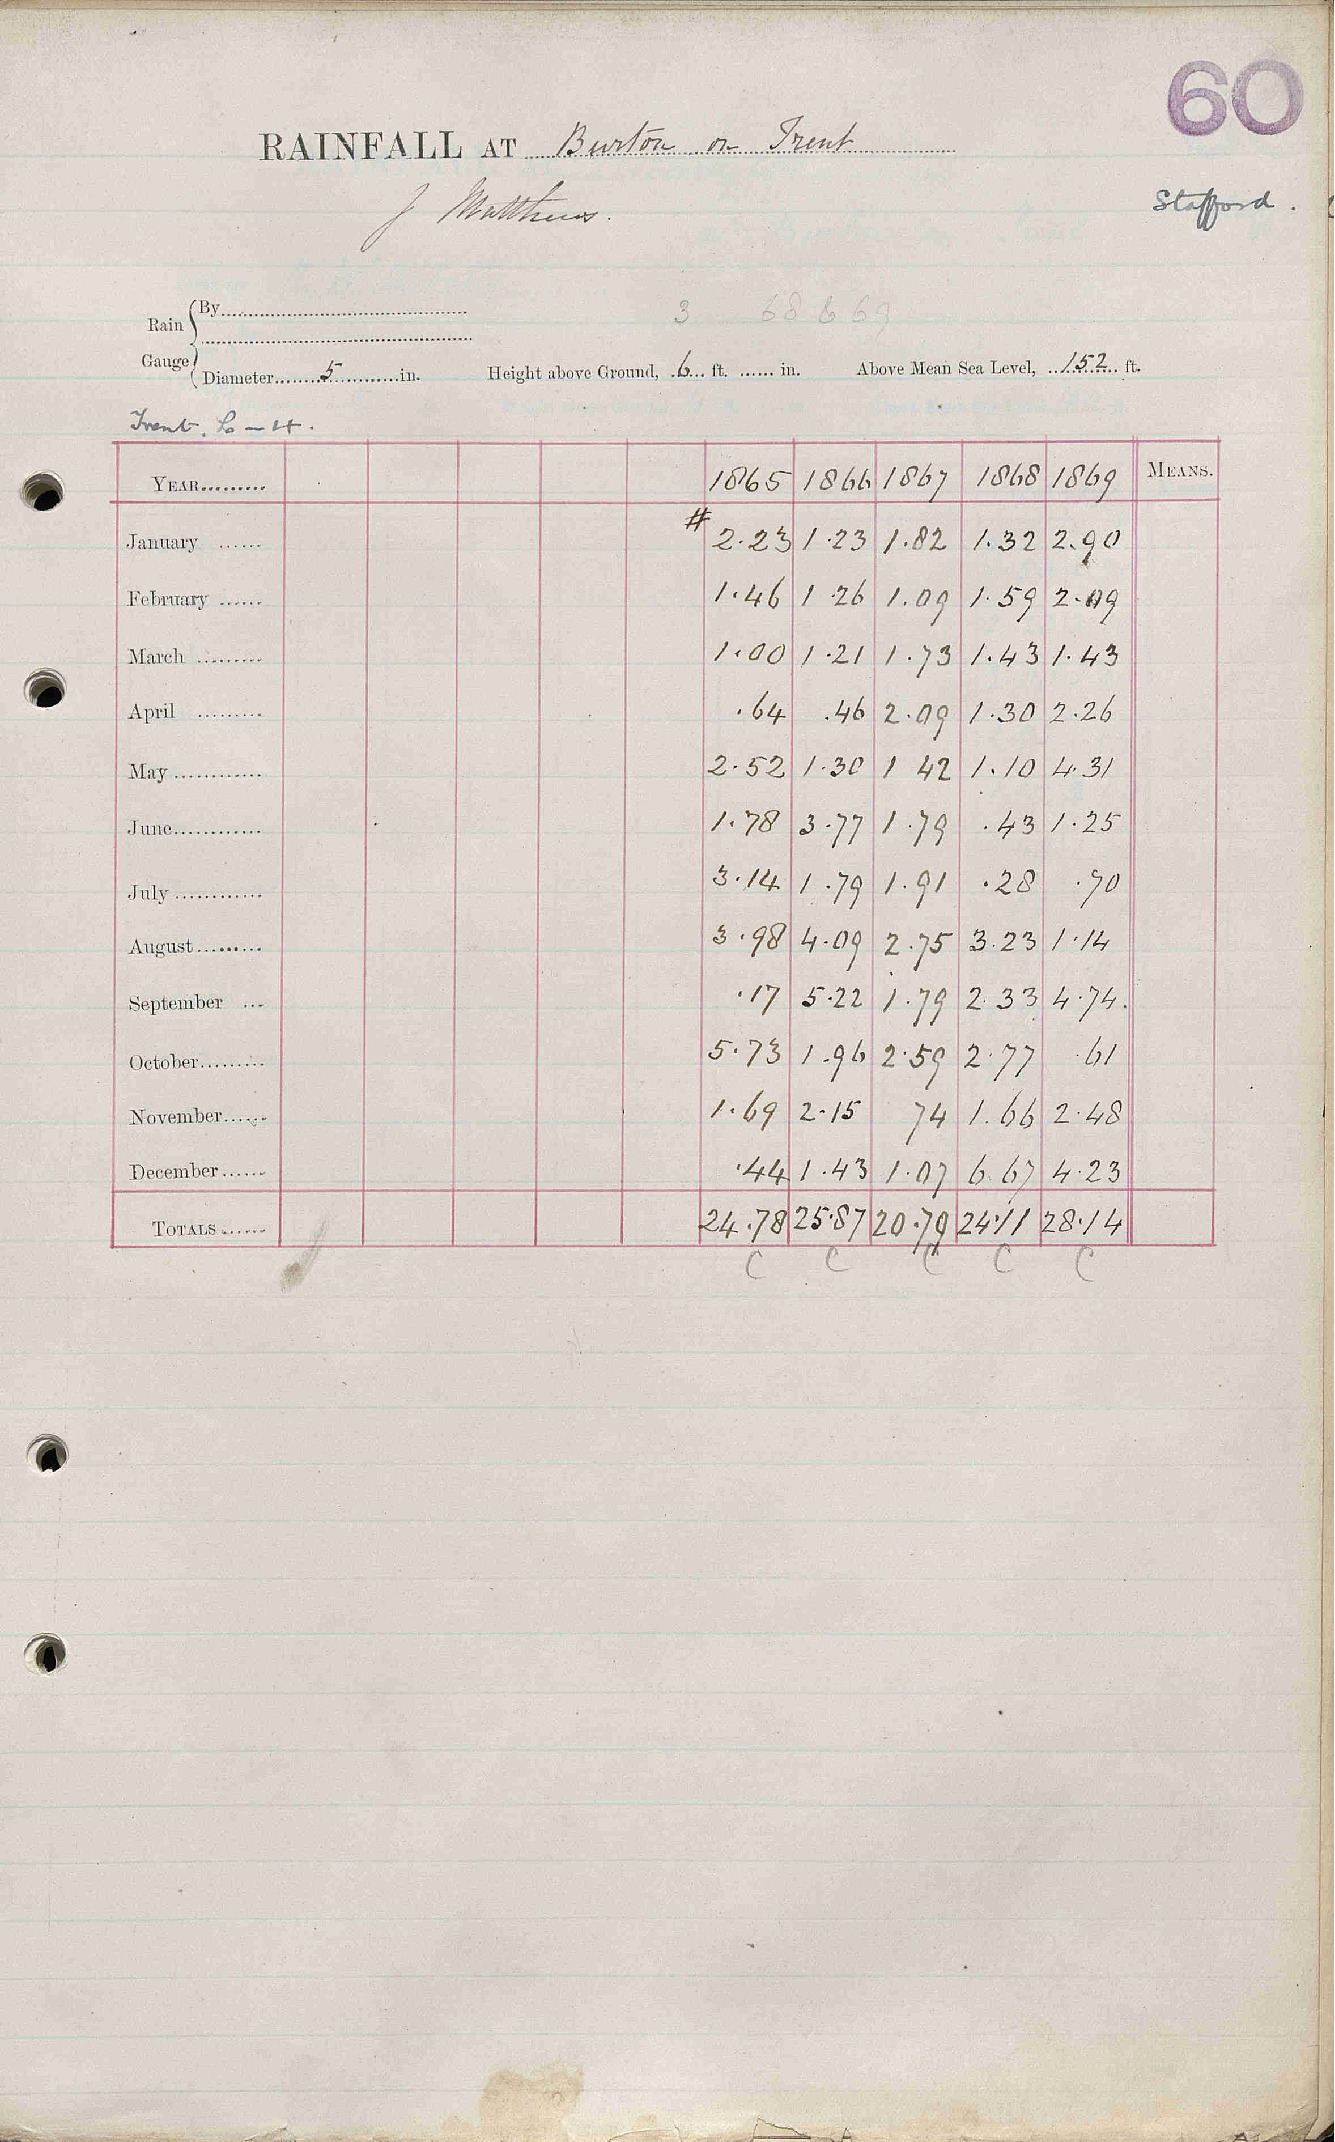 60
RAINFALL AT Burton on Trent
J Matthews.
Stafford.
Rain Gauge
By
3 68 & 69
Diameter 5 in. Height above Ground, 6 ft. in. Above Mean Sea Level, 152 ft.
Trent.
YEAR 1865 1866 1867 1868 1869 MEANS.
January # 2.23 1.23 1.82 1.32 2.90
February 1.46 1.26 1.09 1.59 2.09
March 1.00 1.21 1.73 1.43 1.43
April .64 .46 2.09 1.30 2.26
May 2.52 1.30 1 42 1.10 4.31
June 1.78 3.77 1.79 .43 1.25
July 3.14 1.79 1.91 .28 .70
August 3.98 4.09 2.75 3.23 1.14
September .17 5.22 1.79 2.33 4.74.
October 5.73 1.96 2.59 2.77 .61
November 1.69 2.15 74 1.66 2.48
December .44 1.43 1.07 6.67 4.23
TOTALS 24.78 25.87 20.79 24.11 28.14
C C C C C